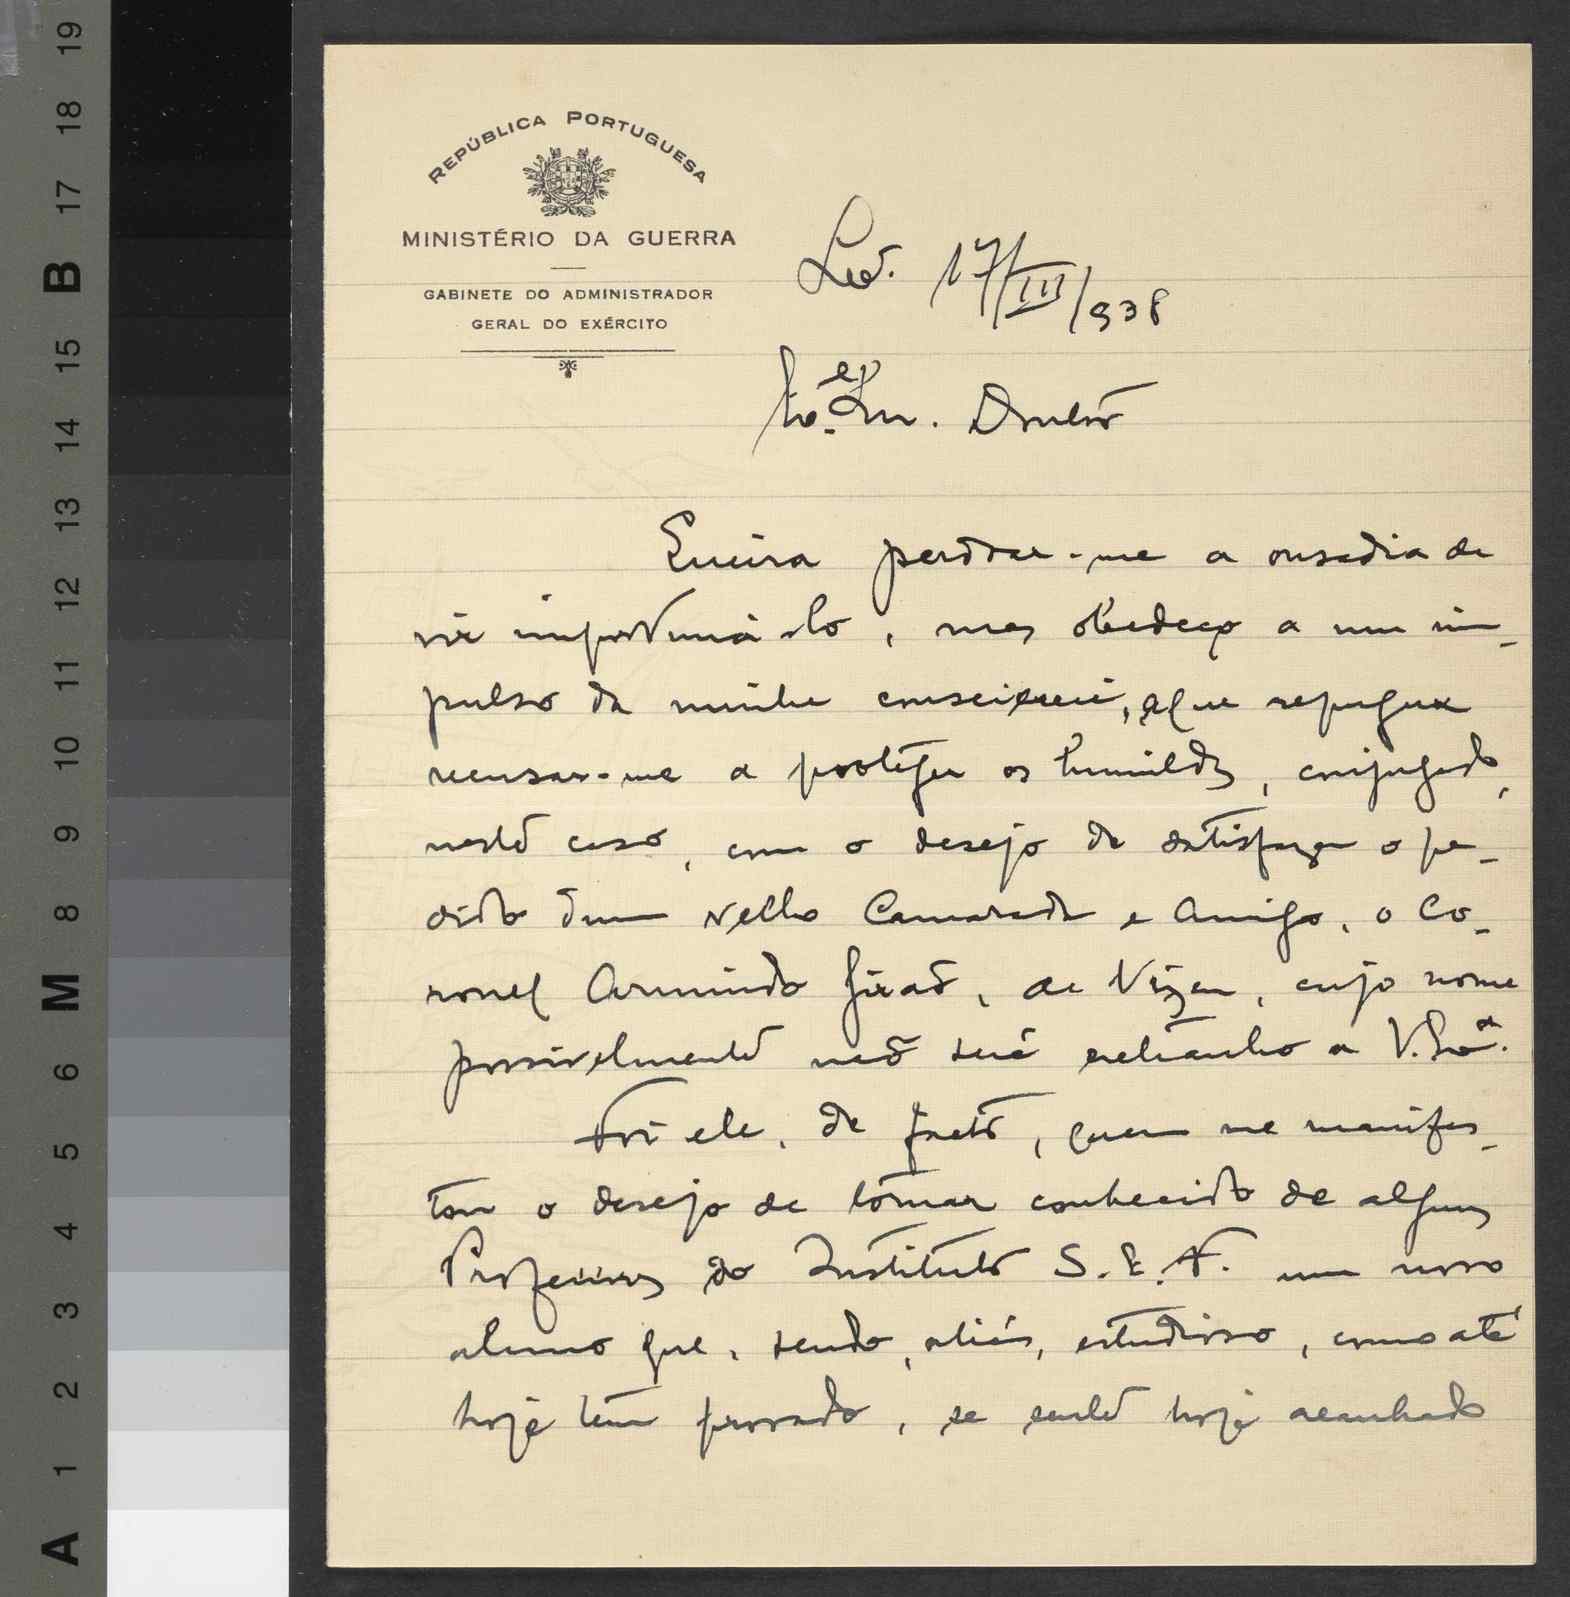 REPÚBLICA PORTUGUESA
MINISTÉRIO DA GUERRA
GABINETE DO ADMINISTRADOR
GERAL DO EXÉRCITO
17/III/938
Doutor
Queira perdoar-me a ousadia de
vir importuná-lo, mas obedeço a um im-
pulso da minha consciência, que repugna
recusar-me a proteger os humildes, conjugado,
neste caso, com o desejo de satisfazer o pe-
dido dum velho Camarada e Amigo, o Co-
ronel Armindo Girão, de Vizeu, cujo nome
possivelmente não será extranho a V. Exª.
Foi ele, de facto, quem me manifes-
tou o desejo de tornar conhecido de alguns
Professores do Instituto S. E. F. um novo
aluno que, sendo, aliás, estudioso, como até
hoje tem provado, se sente hoje acanhado
A 1 2 3 4 5 6 M 8 9 10 11 12 13 14 15 B 17 18 19